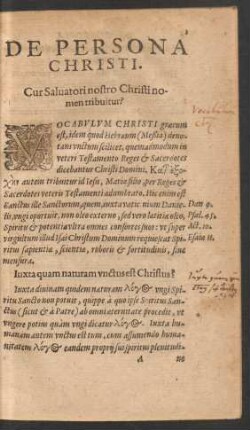 DE PERSONA
CHRISTI.
Cur Saluatori nostro Christi no-
men tribuitur?
VOCABVLVM CHRISTI græcum
est, idem quod Hebræum (Messia) deno-
tans vnctum scilicet, quemadmodum in
veteri Testamento Reges & Sacerdotes
dicebantur Christi Domini. Κατ᾽ ἐξο-
χὴν autem tribuitur id Iesu, Mariæ filio per Reges &
Sacerdotes veteris Testamenti adumbrato. Hic enim est
Sanctus ille Sanctorum, quem iuxta vatic nium Danie-
lis vngi oportuit, non oleo externo, sed vero lætitiæ oleo,
Spiritu & potentia vltra omnes consortes suos: vt super
virgultum illud Isai Christum Dominum requiescat Spi-
ritus sapientiæ, scientiæ, roboris & fortitudinis, sine
mensura.
Dan 9.
Psal. 45.
Act. 10.
Esaiæ 11.
Iuxta quam naturam vnctus est Christus?
Iuxta diuinam quidem naturam λόγος vngi Spi-
ritu Sancto non potuit, quippe à quo ipse Spiritus San-
ctus (sicut & à Patre) ab omni æternitate procedit, et
vngere potius quàm vngi dicatur λόγος. Iuxta hu-
manam autem vnctus est tum, cùm assumendo huma-
nitatem λόγος eandem proprij sui spiritus plenitudi-
A
ne